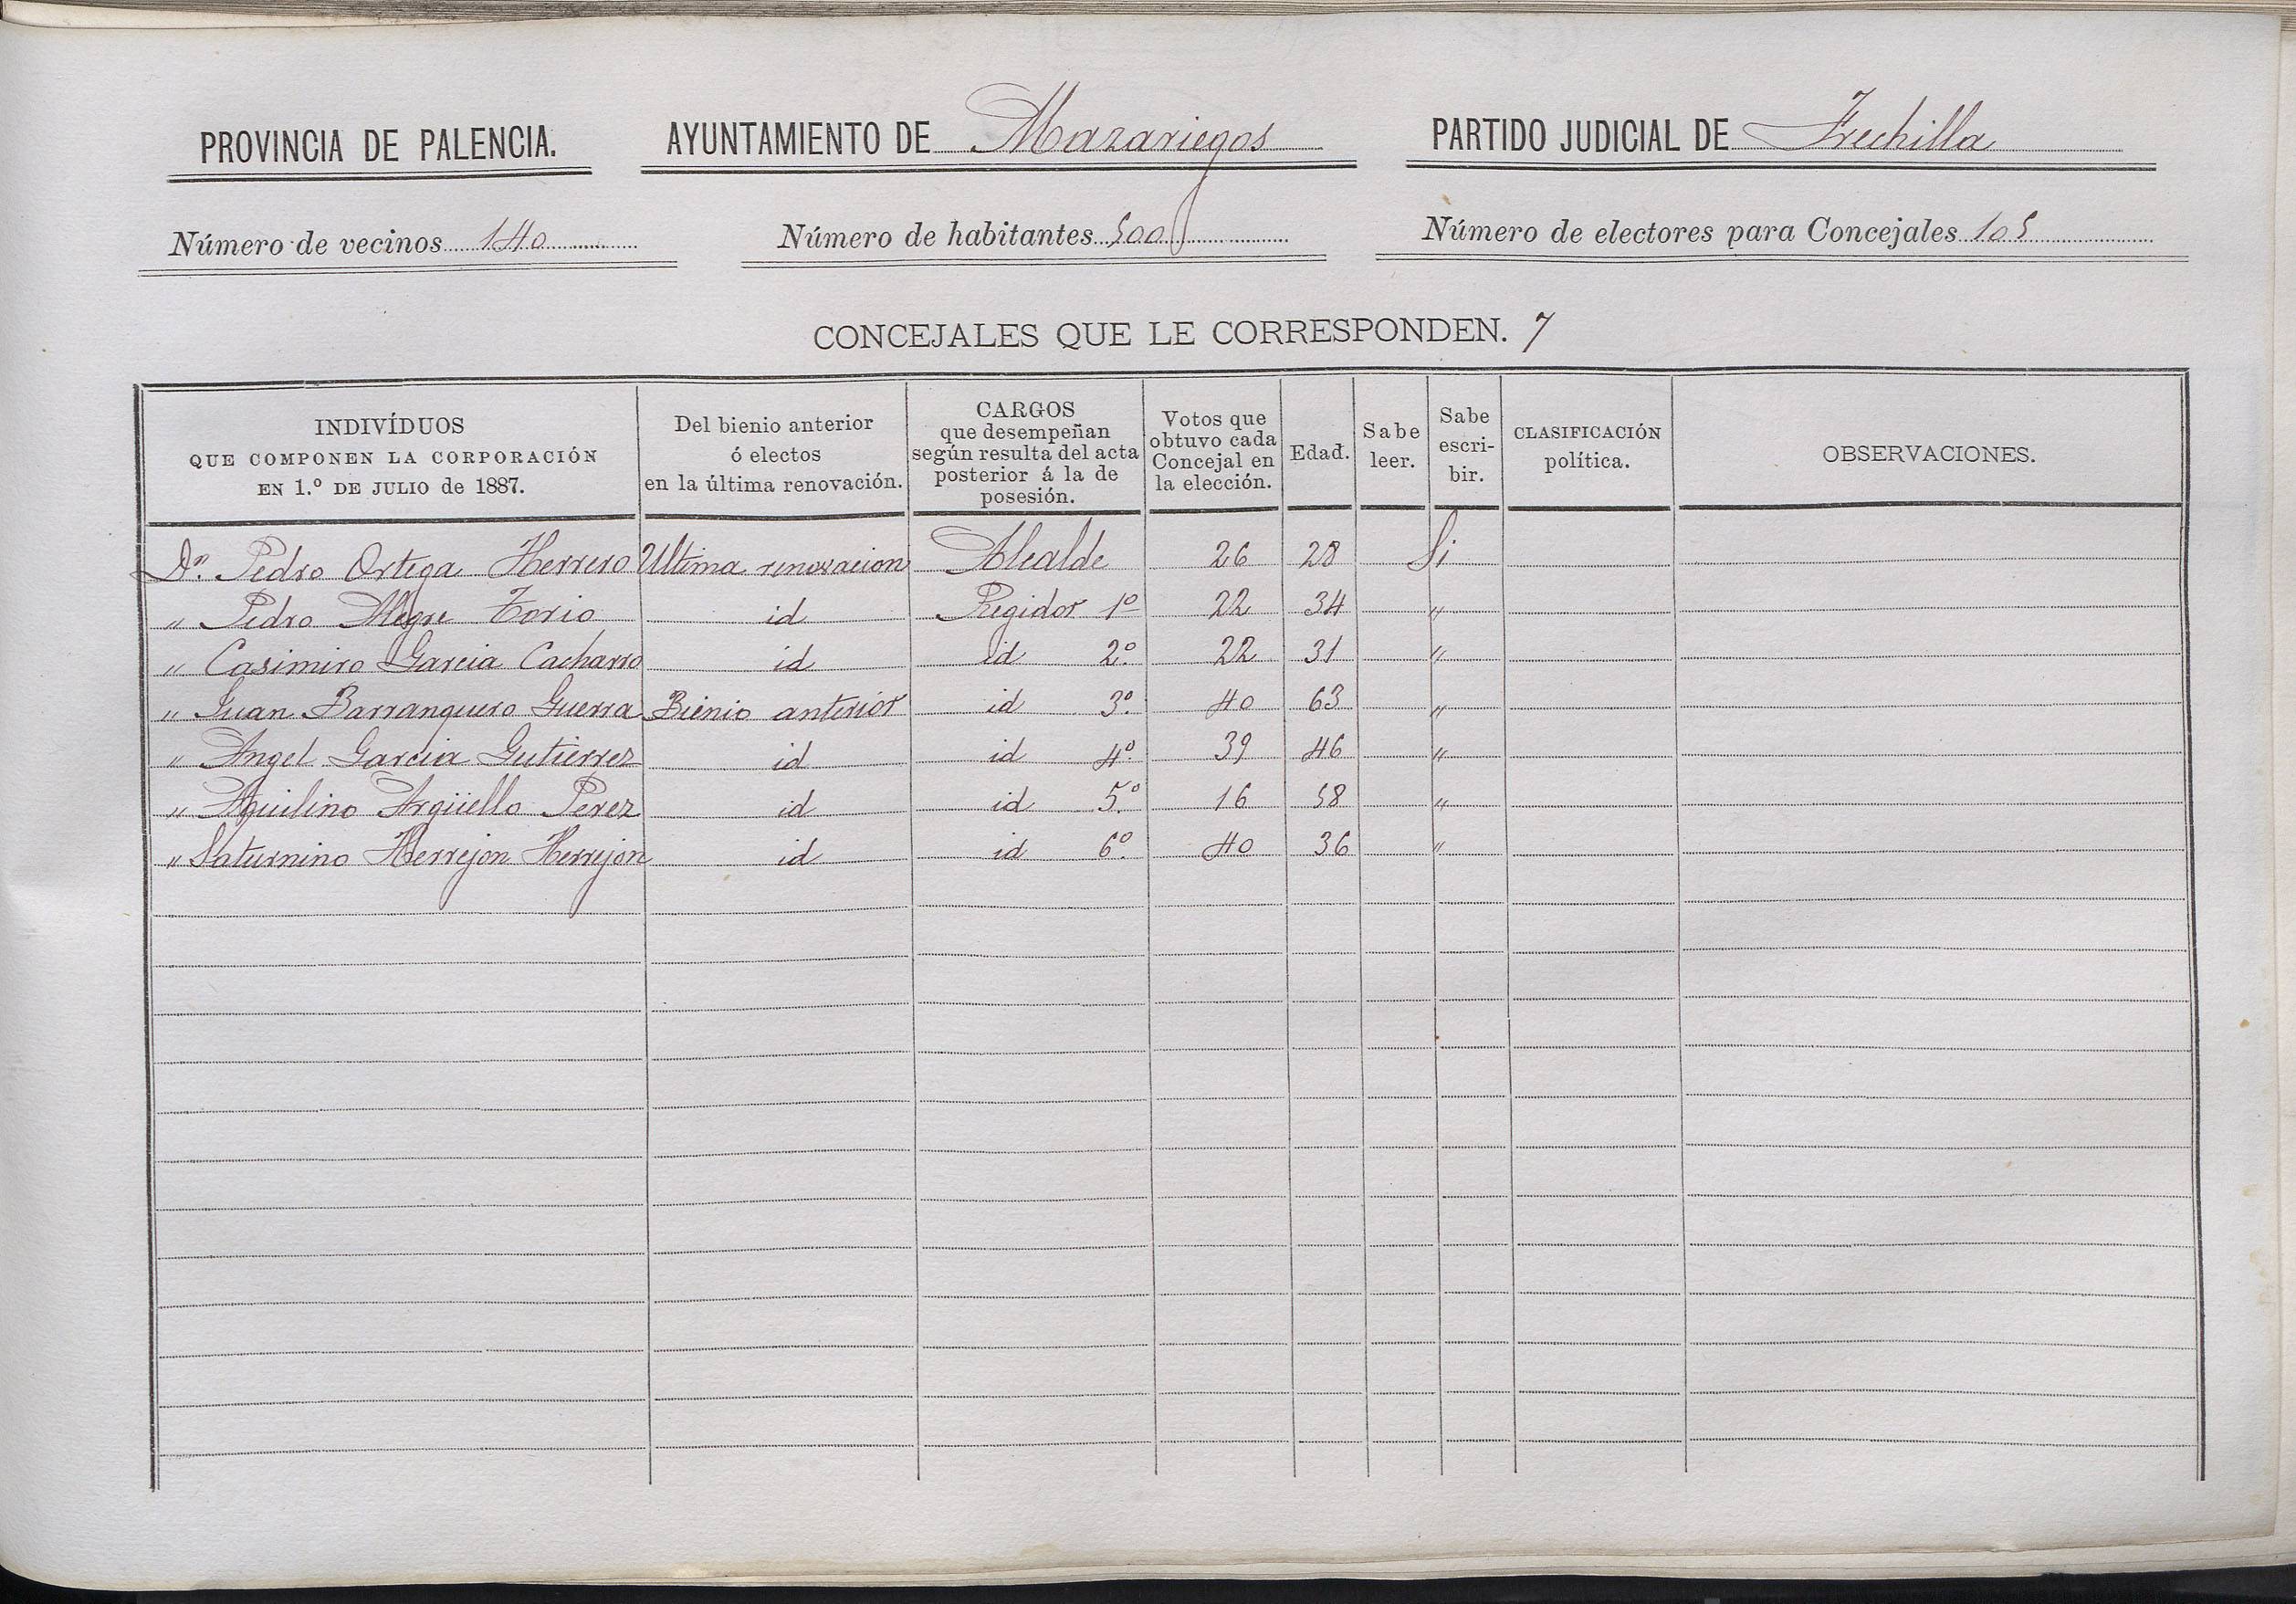 PROVINCIA DE PALENCIA. AYUNTAMIENTO DE Mazariegos PARTIDO JUDICIAL DE Frechilla
Número de vecinos 140 Número de habitantes 500 Número de electores para Concejales 105
CONCEJALES QUE LE CORRESPONDEN. 7
INDIVÍDUOS
QUE COMPONEN LA CORPORACIÓN
EN 1.º DE JULIO de 1887.
Del bienio anterior
ó electos
en la última renovación.
CARGOS
que desempeñan
según resulta del acta
posterior á la de
posesión.
Votos que
obtuvo cada
Concejal en
la elección.
Edad.
Sabe
leer.
Sabe
escri-
bir.
CLASIFICACIÓN
política.
OBSERVACIONES.
Dn. Pedro Ortega Herrero Ultima renovacion Alcalde 26 28 Si
" Pedro Alegre Torio id Regidor 1º 22 34 "
" Casimiro Garcia Cacharro id id 2º. 22 31 "
" Juan Barranquero Guerra Bienio anterior id 3º. 40 63 "
" Angel Garcia Gutierrez id id 4º. 39 46 "
" Aquilino Argüello Perez id id 5.º 16 58 "
" Saturnino Herrejon Herrejon id id 6º. 40 36 "